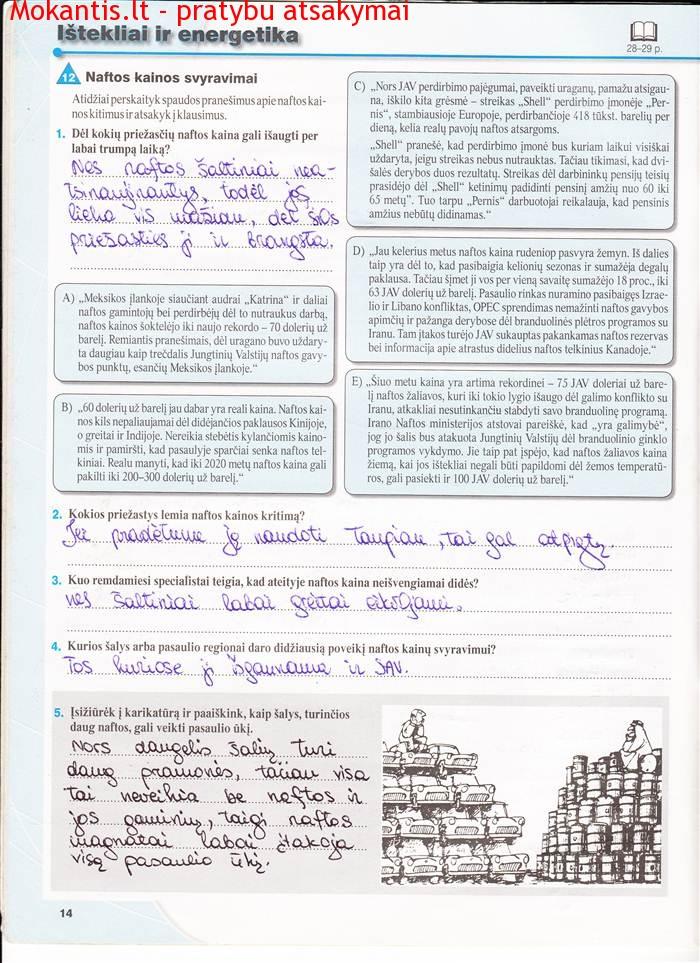 Mokantis.lt - pratybu atsakymai
Ištekliai ir energetika
28–29 p.
12 Naftos kainos svyravimai
Atidžiai perskaityk spaudos pranešimus apie naftos kai-
nos kitimus ir atsakyk į klausimus.
1. Dėl kokių priežasčių naftos kaina gali išaugti per
labai trumpą laiką?
Nes naftos šaltiniai nea-
tsinaujinantys, todėl jos
lieka vis mažiau, dėl šios
priežasties ji ir brangsta.
A) „Meksikos įlankoje siaučiant audrai „Katrina“ ir daliai
naftos gamintojų bei perdirbėjų dėl to nutraukus darbą,
naftos kainos šoktelėjo iki naujo rekordo – 70 dolerių už
barelį. Remiantis pranešimais, dėl uragano buvo uždary-
ta daugiau kaip trečdalis Jungtinių Valstijų naftos gavy-
bos punktų, esančių Meksikos įlankoje.“
B) „60 dolerių už barelį jau dabar yra reali kaina. Naftos kai-
nos kils nepaliaujamai dėl didėjančios paklausos Kinijoje,
o greitai ir Indijoje. Nereikia stebėtis kylančiomis kaino-
mis ir pamiršti, kad pasaulyje sparčiai senka naftos tel-
kiniai. Realu manyti, kad iki 2020 metų naftos kaina gali
pakilti iki 200–300 dolerių už barelį.“
C) „Nors JAV perdirbimo pajėgumai, paveikti uraganų, pamažu atsigau-
na, iškilo kita grėsmė – streikas „Shell“ perdirbimo įmonėje „Per-
nis“, stambiausioje Europoje, perdirbančioje 418 tūkst. barelių per
dieną, kelia realų pavojų naftos atsargoms.
„Shell“ pranešė, kad perdirbimo įmonė bus kuriam laikui visiškai
uždaryta, jeigu streikas nebus nutrauktas. Tačiau tikimasi, kad dvi-
šalės derybos duos rezultatų. Streikas dėl darbininkų pensijų teisių
prasidėjo dėl „Shell“ ketinimų padidinti pensinį amžių nuo 60 iki
65 metų“. Tuo tarpu „Pernis“ darbuotojai reikalauja, kad pensinis
amžius nebūtų didinamas.“
D) „Jau kelerius metus naftos kaina rudeniop pasvyra žemyn. Iš dalies
taip yra dėl to, kad pasibaigia kelionių sezonas ir sumažėja degalų
paklausa. Tačiau šįmet ji vos per vieną savaitę sumažėjo 18 proc., iki
63 JAV dolerių už barelį. Pasaulio rinkas nuramino pasibaigęs Izrae-
lio ir Libano konfliktas, OPEC sprendimas nemažinti naftos gavybos
apimčių ir pažanga derybose dėl branduolinės plėtros programos su
Iranu. Tam įtakos turėjo JAV sukauptas pakankamas naftos rezervas
bei informacija apie atrastus didelius naftos telkinius Kanadoje.“
E) „Šiuo metu kaina yra artima rekordinei – 75 JAV doleriai už bare-
lį naftos žaliavos, kuri iki tokio lygio išaugo dėl galimo konflikto su
Iranu, atkakliai nesutinkančiu stabdyti savo branduolinę programą.
Irano Naftos ministerijos atstovai pareiškė, kad „yra galimybė“,
jog jo šalis bus atakuota Jungtinių Valstijų dėl branduolinio ginklo
programos vykdymo. Jie taip pat įspėjo, kad naftos žaliavos kaina
žiemą, kai jos ištekliai negali būti papildomi dėl žemos temperatū-
ros, gali pasiekti ir 100 JAV dolerių už barelį.“
2. Kokios priežastys lemia naftos kainos kritimą?
Jei pradėtume ją naudoti taupiau, tai gal atpigtų.
3. Kuo remdamiesi specialistai teigia, kad ateityje naftos kaina neišvengiamai didės?
nes šaltiniai labai greitai eikvojami.
4. Kurios šalys arba pasaulio regionai daro didžiausią poveikį naftos kainų svyravimui?
Tos kuriose ji išgaunama ir JAV.
5. Įsižiūrėk į karikatūrą ir paaiškink, kaip šalys, turinčios
daug naftos, gali veikti pasaulio ūkį.
Nors daugelis šalių turi
daug pramonės, tačiau visa
tai neveikia be naftos ir
jos gaminių, taigi naftos
magnatai labai įtakoja
visą pasaulio ūkį.
14